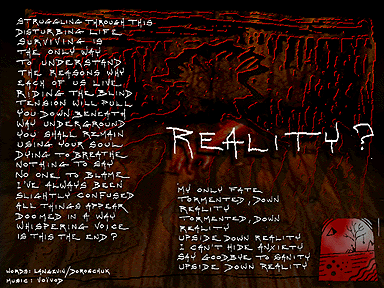 STRUGGLING THROUGH THIS
DISTURBING LIFE
SURVIVING IS
THE ONLY WAY
TO UNDERSTAND
THE REASONS WHY
EACH OF US LIVE
RIDING THE BLIND
TENSION WILL PULL
YOU DOWN BENEATH
WAY UNDERGROUND
YOU SHALL REMAIN
USING YOUR SOUL
DYING TO BREATHE
NOTHING TO SAY
NO ONE TO BLAME
I'VE ALWAYS BEEN
SLIGHTLY CONFUSED
ALL THINGS APPEAR
DOOMED IN A WAY
WHISPERING VOICE
IS THIS THE END?
REALITY?
MY ONLY FATE
TORMENTED, DOWN
REALITY
TORMENTED, DOWN
REALITY
UPSIDE DOWN REALITY
I CAN'T HIDE ANXIETY
SAY GOODBYE TO SANITY
UPSIDE DOWN REALITY
WORDS: LANGEVIN/DOROSCHUK
MUSIC: VOIVOD